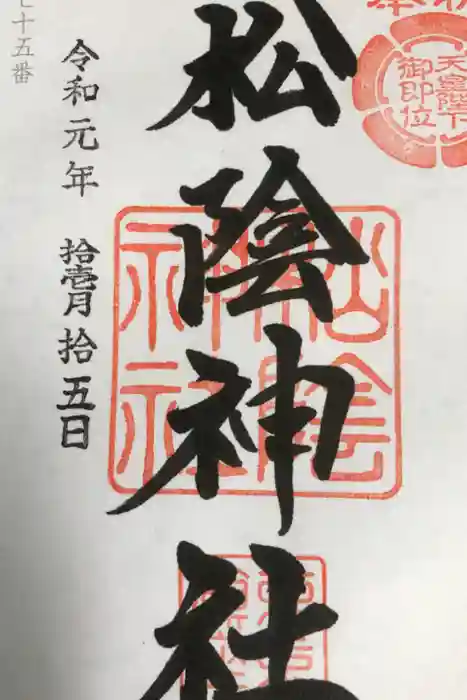 天皇陛下
御即位
松陰神社
令和元年 拾壱月拾五日
七十五番